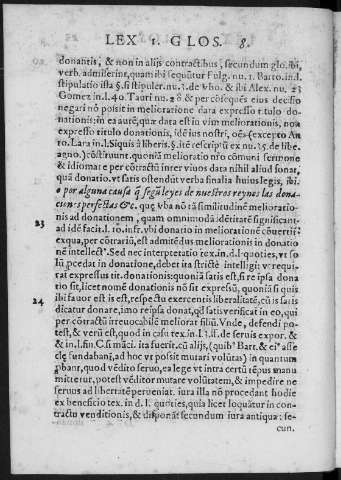 LEX 1. GLOS. 8.
donantis, & non in alijs contractibus, secundum glo. ibi,
verb. admiserint, quam ibi sequūtur Fulg. nu. 1. Barto. in. l.
stipulatio ista §. si stipuler. nu. 7. de vbo. & ibi Alex. nu. 23
Gomez in. l. 40. Tauri nu. 28 & per cōsequēs eius decisio
negari nō possit in melioratione data expresso titulo do
nationis: in ea autē, quę data est in vim meliorationis, non
expresso titulo donationis, idē ius nostri, oēs (excepto An
to. Lara in. l. Siquis à liberis. §. itē rescriptū ex nu. 25. de libe.
agno.) cōstituunt. quoniā melioratio nr̄o cōmuni sermone
& idiomate per cōtractū inter viuos data nihil aliud sonat,
quā donatio. vt satis ostendūt verba finalia huius legis, ibi.
o por alguna causa q̄ segū leyes de nuestros reynos las dona-
ciones perfectas &c. quę vba nō tā similitudinē melioratio-
23 nis ad donationem, quam omnimodā idētitatē significant.
ad idē facit. l. 10. infr. vbi donatio in meliorationē cōuertit:
exqua, per cōtrariū, est admitēdus melioratiōis in donatio
nē intellectꝰ. Sed nec interpretatio tex. in. d. l. quoties, vt so
lū ꝓcedat in donatione, debet ita strictè intelligi: vt requi-
rat expressus tit. donationis: quoniā satis est, si re ipsa dona
tio sit, licet nomē donationis nō sit expressū, quoniā si quis
ibi fauor est is est, respectu exercentis liberalitatē, cū is satis
24 dicatur donare, imo reipsa donat, qd satis verificat in eo, qui
per cōtractū irreuocabilē meliorat filiū. Vnde, defendi po-
test, & verū est, quod in casu tex. in. l. 1. ff. de seruis expor. &
& in. l. fin. C. si māci. ita fuerit. cū alijs, (quibꝰ Bart. & eiꝰ asse
clę fundabant, ad hoc vt possit mutari volūtas) in quantum
ꝓbant, quod vēdito seruo, ea lege vt intra certū tēpus manu
mitterur, potest vēditor mutare volūtatem, & impedire ne
seruus ad libertatē perueniat. iura illa nō procedant hodie
ex beneficio tex. in d. l. quoties, quia licet loquātur in con-
tractu venditionis, & disponāt secundum iura antiqua: se-
cun.